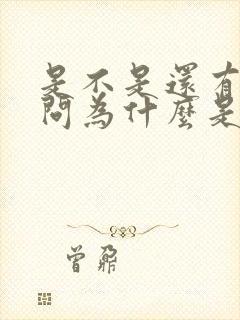 是不是還有
問為什麼是
曾鼐